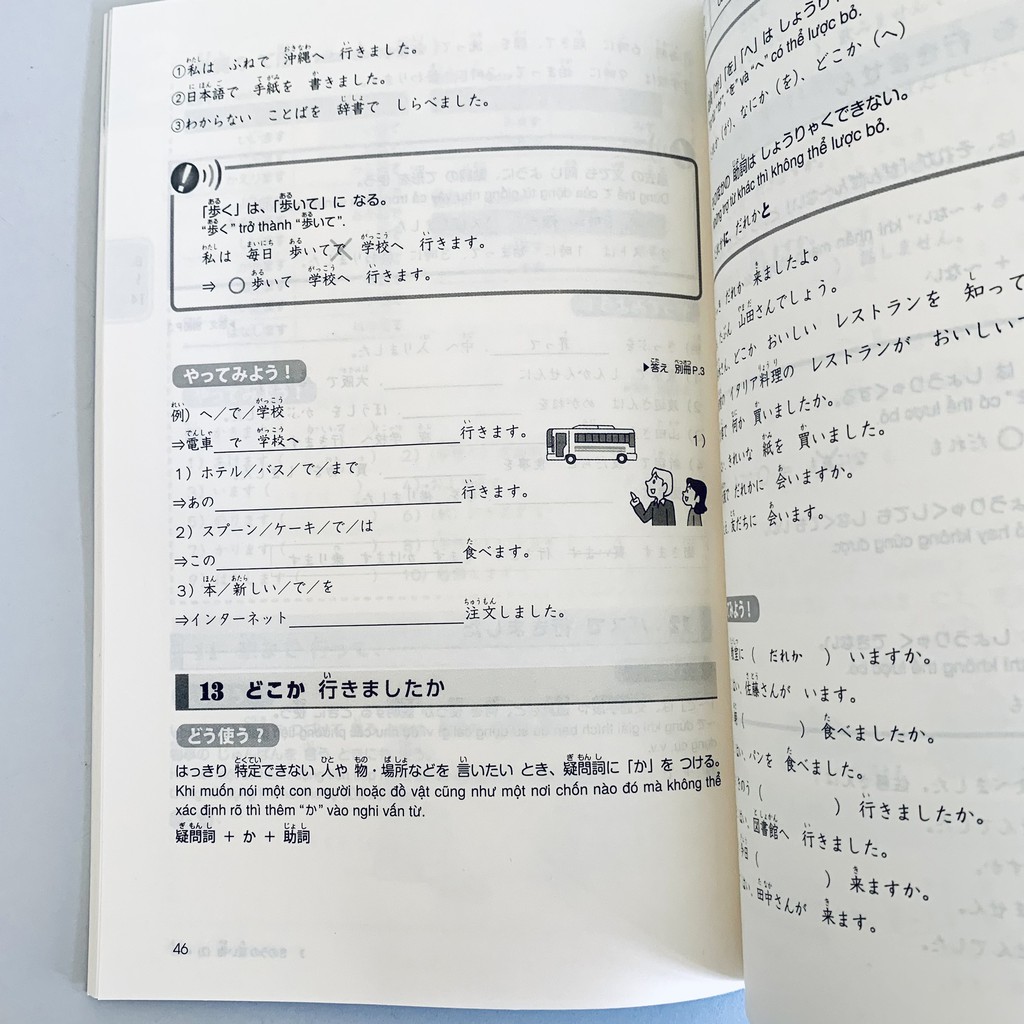 ①私は ふねで 沖縄へ 行きました。
②日本語で 手紙を 書きました。
③わからない ことばを 辞書で しらべました。
「歩く」は、「歩いて」に なる。
“歩く” trở thành “歩いて”.
私は 毎日 歩いてで 学校へ 行きます。
⇒ ○歩いて 学校へ 行きます。
やってみよう!
▶答え 別冊P.3
例)へ/で/学校
⇒電車 で 学校へ 行きます。
1)ホテル/バス/で/まで
⇒あの 行きます。
1)
2)スプーン/ケーキ/で/は
⇒この 食べます。
3)本/新しい/で/を
⇒インターネット 注文しました。
13 どこか 行きましたか
どう使う?
はっきり 特定できない 人や 物・場所などを 言いたい とき、疑問詞に 「か」を つける。
Khi muốn nói một con người hoặc đồ vật cũng như một nơi chốn nào đó mà không thể
xác định rõ thì thêm “か” vào nghi vấn từ.
疑問詞 + か + 助詞
46
「を」「へ」は しょうりゃ
“を” và “へ” có thể lược bỏ.
(が)、なにか(を)、どこか(へ)
助詞は しょうりゃくできない。
trợ từ khác thì không thể lược bỏ.
に、だれかと
だれか 来ましたよ。
山田さんでしょう。
どこか おいしい レストランを 知って
イタリア料理の レストランが おいしい
何か 買いましたか。
きれいな 紙を 買いました。
だれかに 会いますか。
友だちに 会います。
みよう!
教室に( だれか ) いますか。
佐藤さんが います。
( ) 食べましたか。
パンを 食べました。
( ) 行きましたか。
図書館へ 行きました。
( ) 来ますか。
田中さんが 来ます。